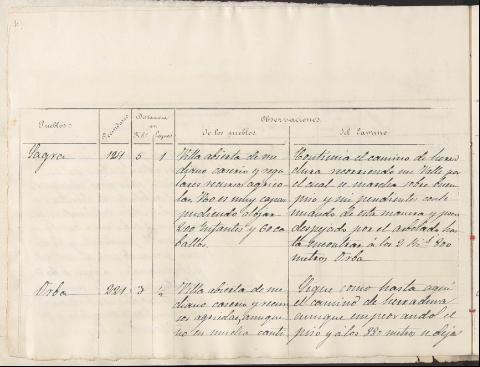 Distancia
en
Observaciones
Pueblos
Vecindario
K.os
Leguas
De los pueblos
del Camino
Sagra
124
5
1
Villa abierta de me
diano caserio y regu
lares recursos agrico
las. No es muy capaz
pudiendo alojar
200 Infantes y 60 ca
ballos.
Continúa el camino de herra
dura recorriendo un Valle por
el cual se marcha sobre buen
piso y sin pendientes conti
nuando de esta manera y poco
despejado por el arbolado has
ta encontrar á los 2 Kil.s 800
metros Orba
Orba
221
3
1/2
Villa abierta de me
diano caserio y recur
sos agricolas, aunque
no en mucha canti
Sigue como hasta aqui
el camino de herradura
aunque empeorando el
piso y á los 830 metros se deja